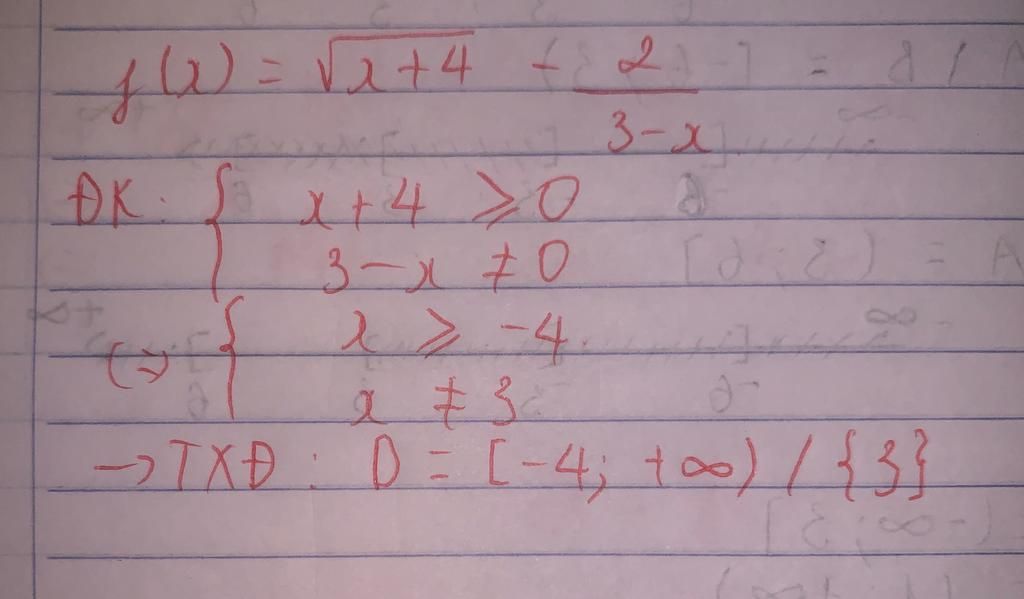 f(x) = √(x+4) - 2/(3-x)
ĐK: { x+4 ⩾ 0
3-x ≠ 0
(=> { x ⩾ -4.
x ≠ 3
→ TXĐ: D = [-4; +∞) / {3}